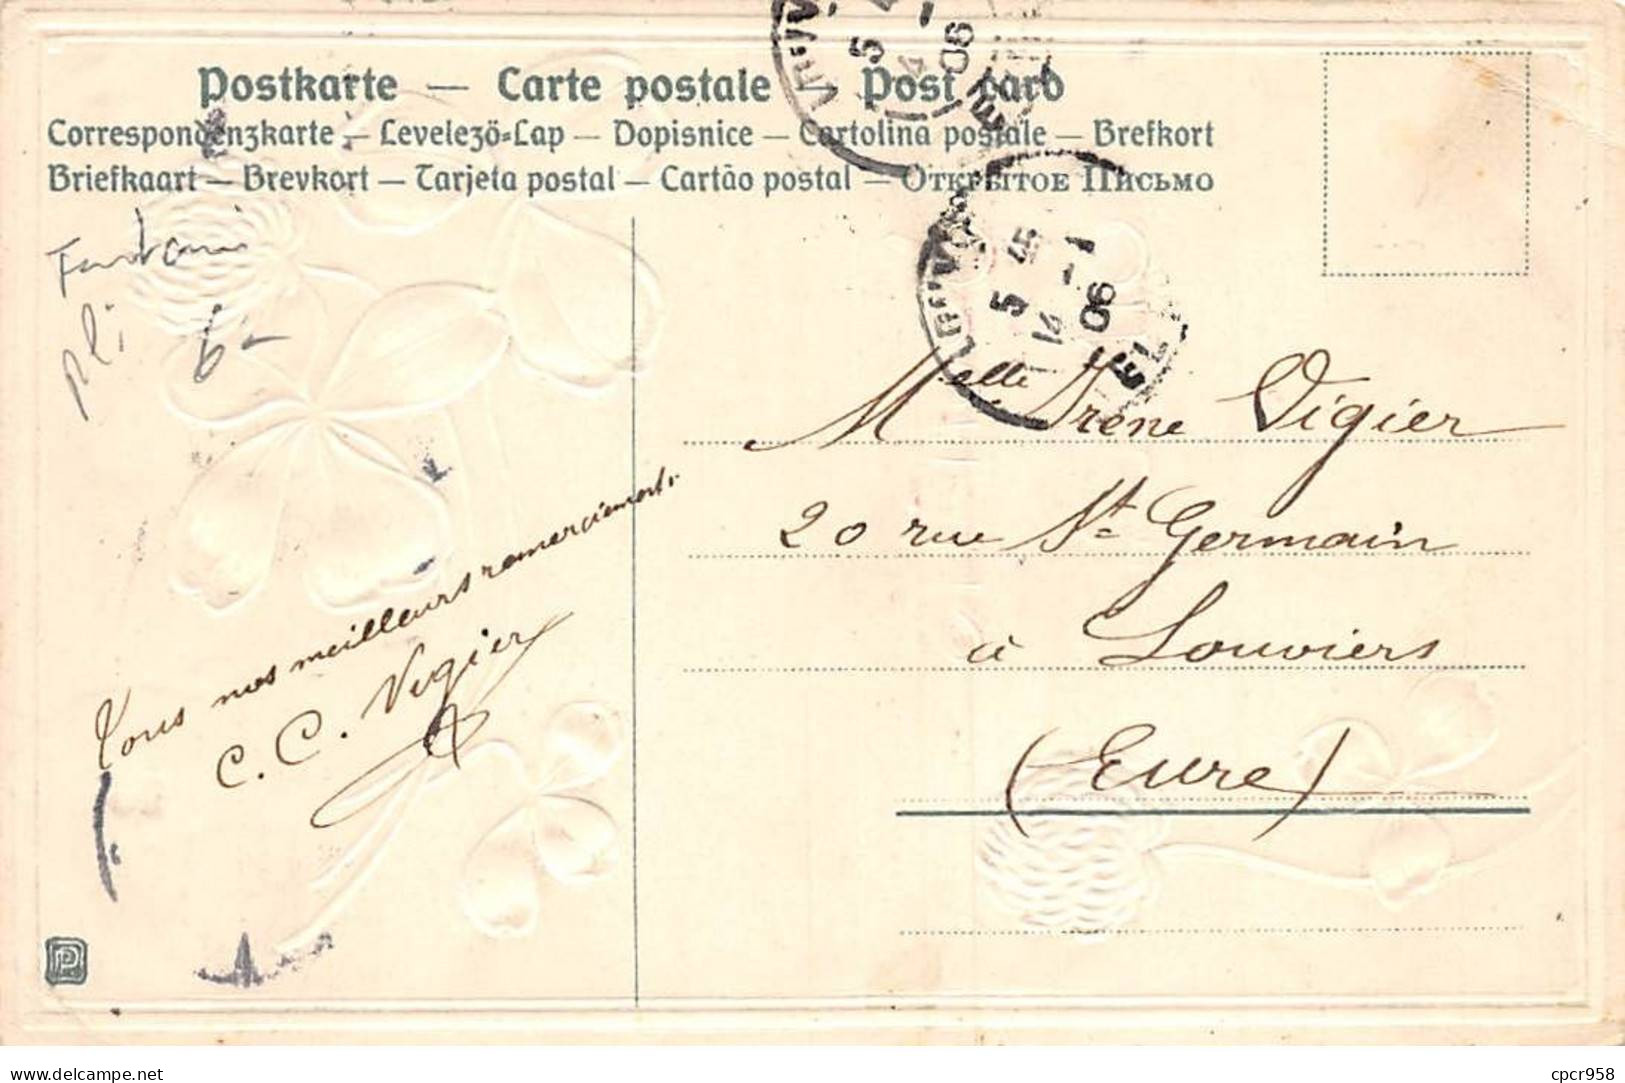 Postkarte — Carte postale — Post card
Correspondenzkarte — Levelező-Lap — Dopisnice — Cartolina postale — Brefkort
Briefkaart — Brevkort — Tarjeta postal — Cartão postal — Открытое Письмо
5 4 - 1
14
06
5 45
14 - 1
06
pli 6-
Melle Irène Vigier
20 rue St Germain
à Louviers
(Eure)
Tous nos meilleurs remerciements.
C. C. Vigier
P
Delcampe.net
cpcr958